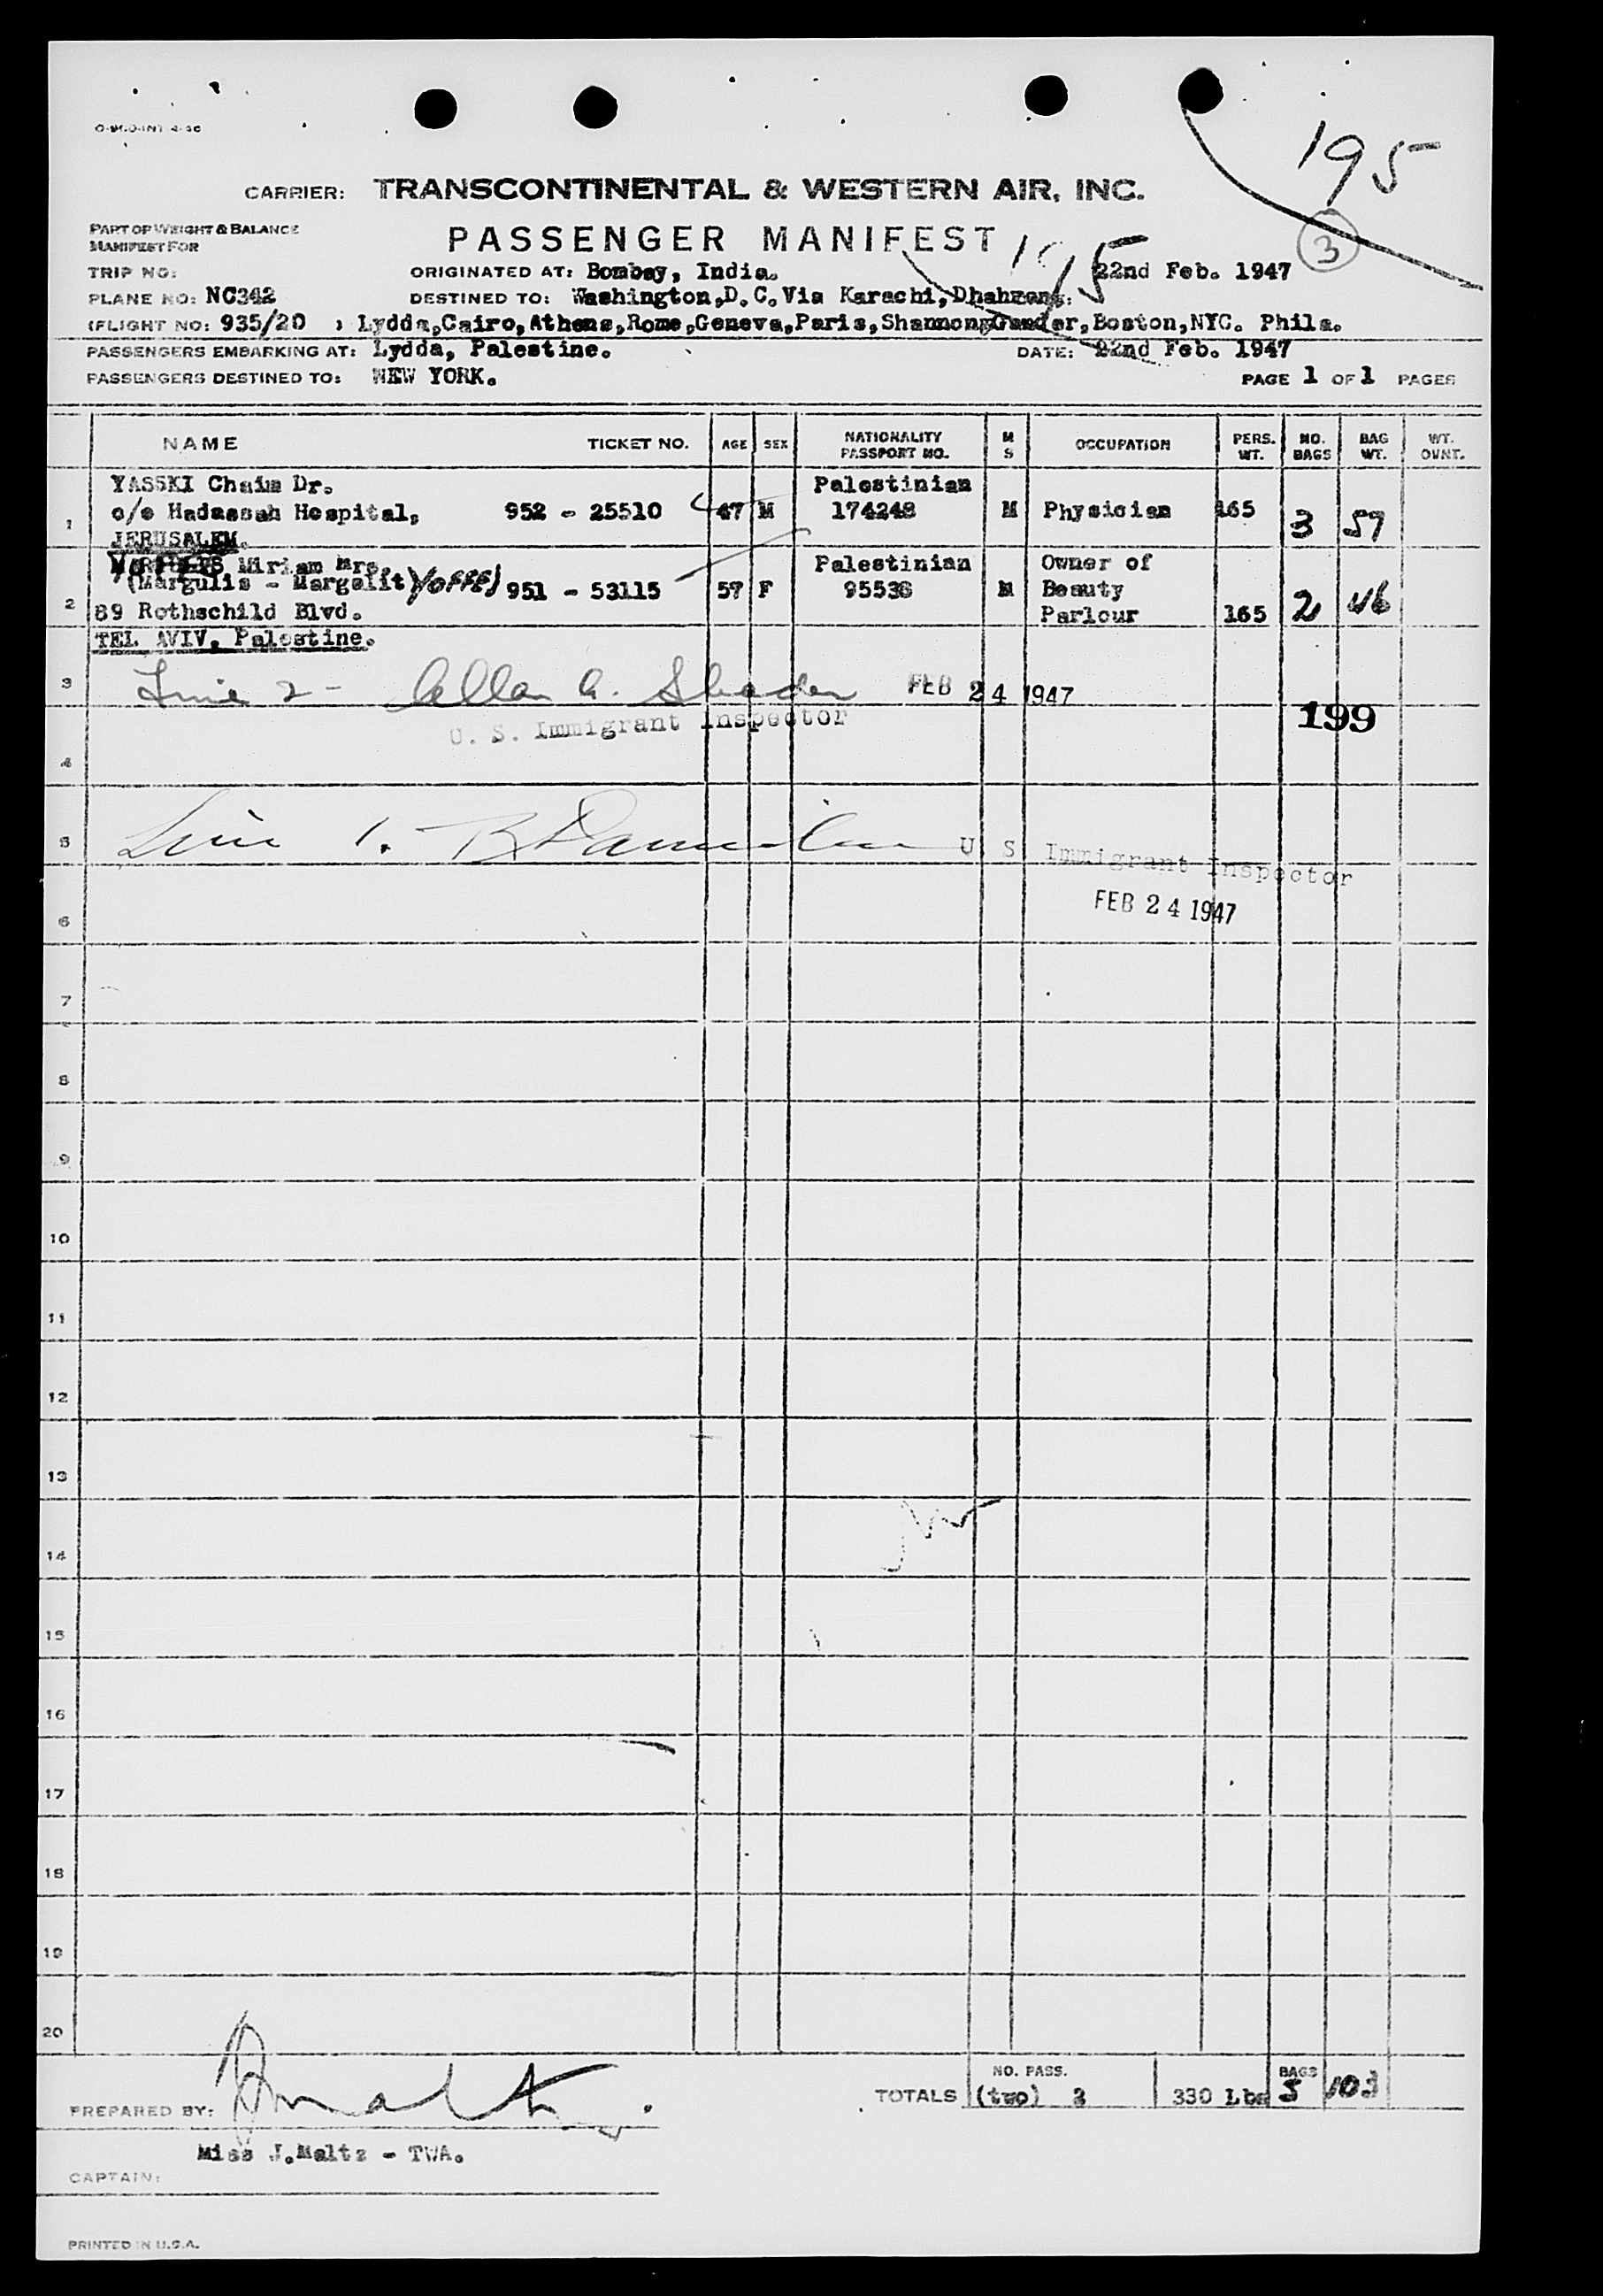 195
CARRIER: TRANSCONTINENTAL & WESTERN AIR, INC.
PART OF WEIGHT & BALANCE
MANIFEST FOR
PASSENGER MANIFEST
195
3
TRIP NO:
ORIGINATED AT: Bombay, India.
22nd Feb. 1947
PLANE NO: NC342
DESTINED TO: Washington,D.C.Via Karachi,Dhahran,
(FLIGHT NO: 935/20 ) Lydda,Cairo,Athens,Rome,Geneva,Paris,Shannon,Gander,Boston,NYC. Phila.
PASSENGERS EMBARKING AT: Lydda, Palestine.
DATE: 22nd Feb. 1947
PASSENGERS DESTINED TO: NEW YORK.
PAGE 1 OF 1 PAGES
NAME TICKET NO. AGE SEX NATIONALITY PASSPORT NO. M S OCCUPATION PERS. WT. NO. BAGS BAG WT. WT. OVNT.
YASSKI Chaim Dr. Palestinian
1 c/o Hadassah Hospital, 952 - 25510 47 M 174248 M Physician 165 3 57
JERUSALEM.
Miriam Mrs. Palestinian Owner of
(Margulis - Margalit YOFFE) 951 - 53115 57 F 95538 M Beauty
2 89 Rothschild Blvd. Parlour 165 2 46
TEL AVIV, Palestine.
3 Line 2 - Allan A. Shader FEB 24 1947
U. S. Immigrant Inspector
199
4
5 Line 1. U S Immigrant Inspector
FEB 24 1947
6
7
8
9
10
11
12
13
14
15
16
17
18
19
20
TOTALS NO. PASS. (two) 2 330 Lbs BAGS 5 103
PREPARED BY:
Miss J.Maltz - TWA.
CAPTAIN:
PRINTED IN U.S.A.